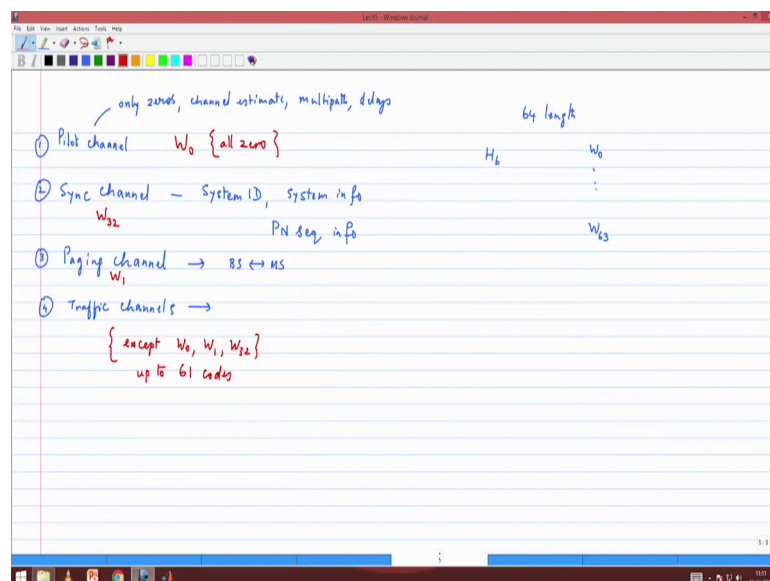 Lec45 - Windows Journal
File Edit View Insert Actions Tools Help
B I
only zeros, channel estimate, multipath, delays
64 length
① Pilot channel W0 {all zero}
H6 W0
② Sync channel – System ID, System info
W32
PN seq info
W63
③ Paging channel → BS ↔ MS
W1
④ Traffic channels →
{except W0, W1, W32}
up to 61 codes
5 / 8
11:11